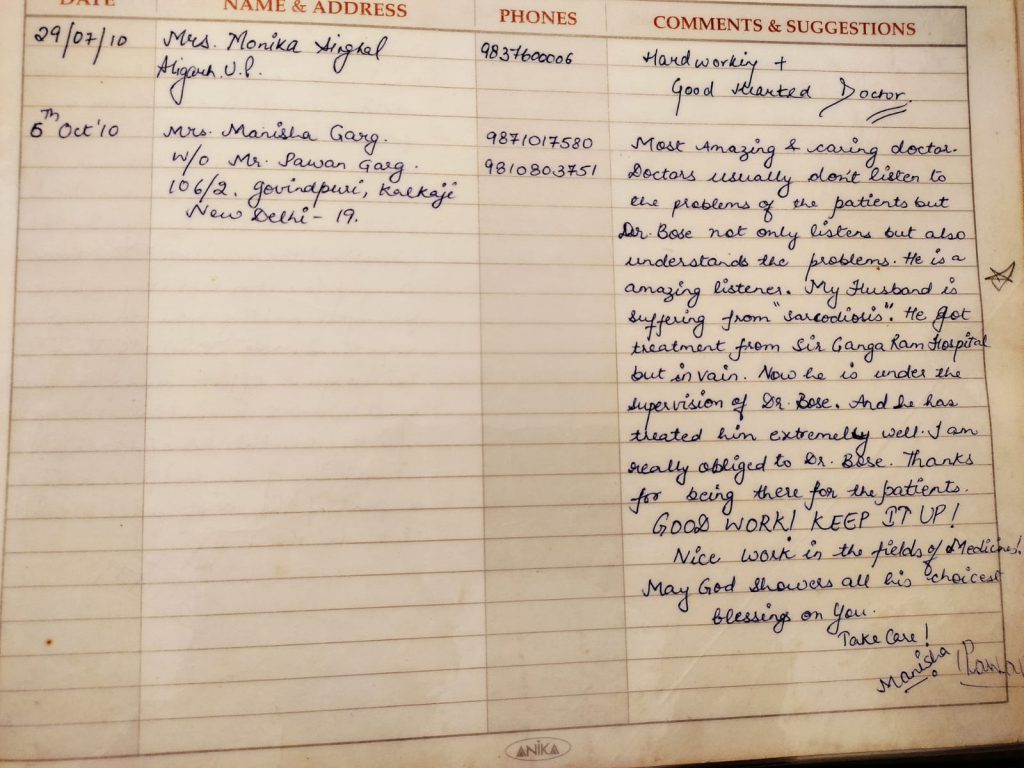 DATE NAME & ADDRESS PHONES COMMENTS & SUGGESTIONS
29/07/10 Mrs. Monika Singhal 9837600006 Hardworking +
Aligarh U.P. Good Hearted Doctor.
5Th Oct'10 Mrs. Manisha Garg. 9871017580 Most Amazing & caring doctor.
W/o Mr. Sawan Garg. 9810803751 Doctors usually don't listen to
106/2, Govindpuri, Kalkaji the problems of the patients but
New Delhi - 19. Dr. Bose not only listens but also
understands the problems. He is a
amazing listener. My Husband is
suffering from "Sarcodiosis". He got
treatment from Sir Ganga Ram Hospital
but in vain. Now he is under the
supervision of Dr. Bose. And he has
treated him extremelly well. I am
really obliged to Dr. Bose. Thanks
for being there for the patients.
GOOD WORK! KEEP IT UP!
Nice work in the fields of Medicines!
May God showers all his choicest
blessings on You.
Take Care!
Manisha
ANIKA